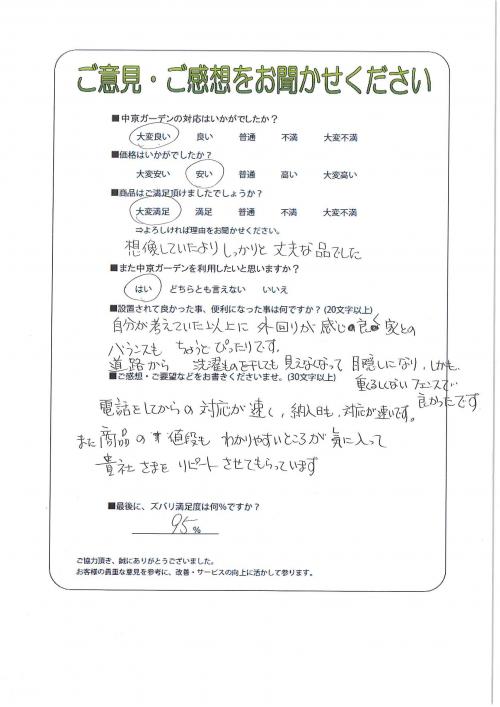 ご意見・ご感想をお聞かせください
■中京ガーデンの対応はいかがでしたか？
大変良い 良い 普通 不満 大変不満
■価格はいかがでしたか？
大変安い 安い 普通 高い 大変高い
■商品はご満足頂けましたでしょうか？
大変満足 満足 普通 不満 大変不満
⇒よろしければ理由をお聞かせください。
想像していたよりしっかりと丈夫な品でした
■また中京ガーデンを利用したいと思いますか？
はい どちらとも言えない いいえ
■設置されて良かった事、便利になった事は何ですか？(20文字以上)
自分が考えていた以上に 外回りが感じの良く 家との
バランスも ちょうどぴったりです。
道路から 洗濯ものを干しても 見えなくなって 目隠しになり、しかも
重くるしくない フェンスで
良かったです
■ご感想・ご要望などをお書きくださいませ。(30文字以上)
電話をしてからの対応が速く、納入日も、対応が速いです。
また商品の 値段も わかりやすいところが気に入って
貴社さまを リピートさせてもらっています
■最後に、ズバリ満足度は何％ですか？
95 %
ご協力頂き、誠にありがとうございました。
お客様の貴重な意見を参考に、改善・サービスの向上に活かして参ります。